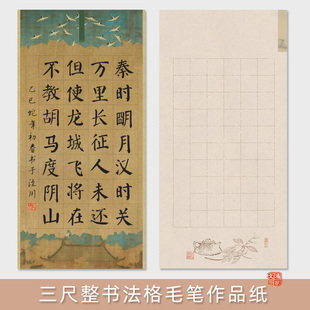 秦时明月汉时关
万里长征人未还
但使龙城飞将在
不教胡马度阴山
乙巳蛇年初春书于泾川
三尺整书法格毛笔作品纸